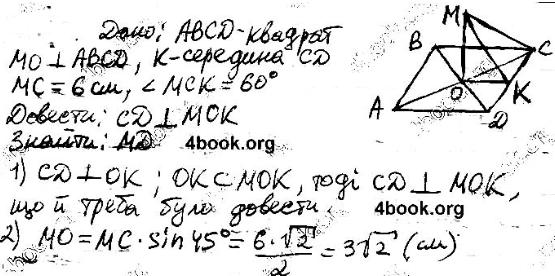 Дано: ABCD - квадрат
MO ⊥ ABCD, K - середина CD
MC = 6 см, ∠MCK = 60°
Довести: CD ⊥ MOK
Знайти: MD
4book.org
1) CD ⊥ OK; OK ⊂ MOK, тоді CD ⊥ MOK,
що й треба було довести.
4book.org
2) MO = MC · sin 45° = 6·√2/2 = 3√2 (см)
M
B
C
O
K
A
D